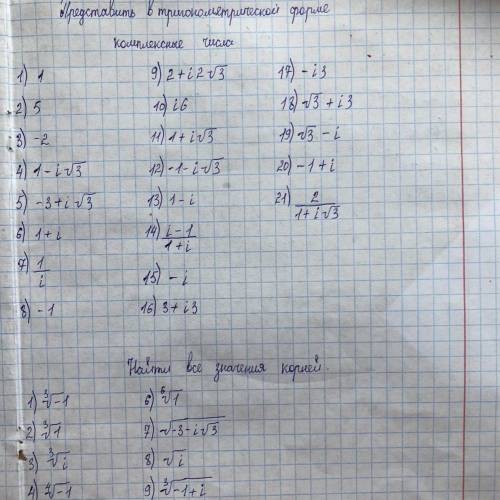 Представить в тригонометрической форме
комплексные числа
1) 1
2) 5
3) -2
4) 1-i√3
5) -3+i√3
6) 1+i
7) 1/i
8) -1
9) 2+i2√3
10) i6
11) 1+i√3
12) -1-i√3
13) 1-i
14) (i-1)/(1+i)
15) -i
16) 3+i3
17) -i3
18) √3+i3
19) √3-i
20) -1+i
21) 2/(1+i√3)
Найти все значения корней.
1) ∛-1
2) ∛1
3) ∛i
4) ∜-1
6) ⁶√1
7) √-3-i√3
8) √i
9) ∛-1+i